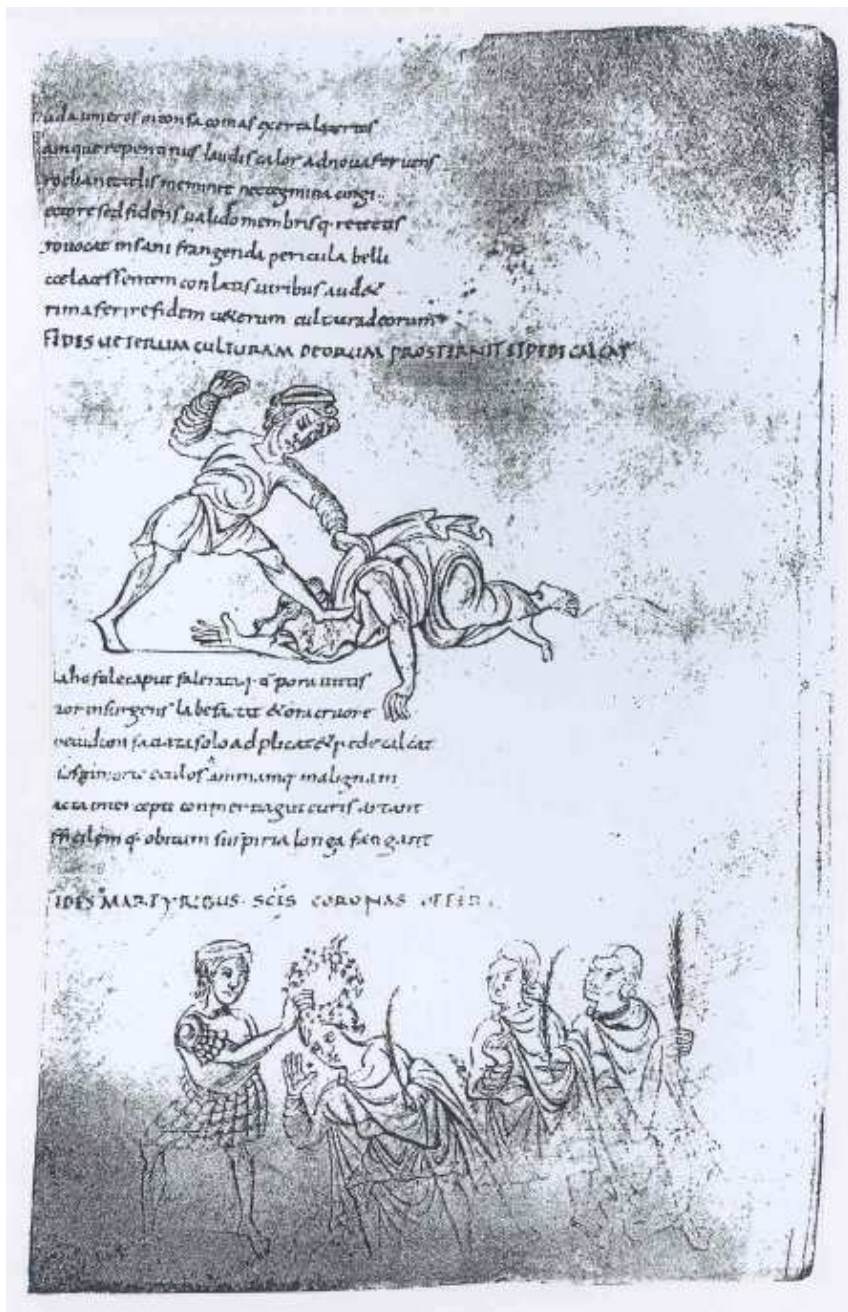 uda umeros intonsa comas exerta lacertos
amque repentinus laudis calor ad noua feruens
roelia nec telis meminit nec tegmina cingi
ectore sed fidens ualido membrisq. retectis
rouocat insani frangenda pericula belli
cce lacessentem conlatis uiribus audet
rima ferire fidem ueterum cultura deorum
FIDES UETERUM CULTURAM DEORUM PROSTERNIT ET PEDE CALCAT
caput falerataq. uittis
tior insurgens labefactat & ora cruore
pecudum satiata solo adplicat & pede calcat
oculos animamq malignam
artant
fficilemq. obitum suspiria longa fatigant
IDES MARTYRIBUS SCIS CORONAS OFFER